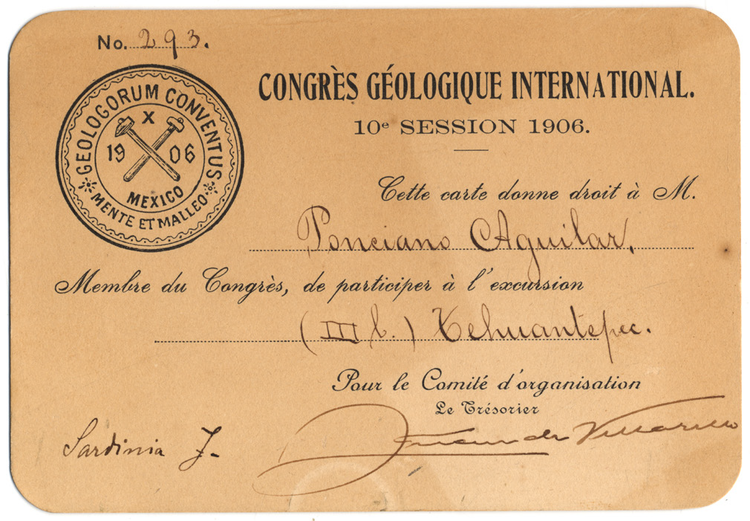 No. 293.
GEOLOGORUM CONVENTUS
X
19 06
MEXICO
MENTE ET MALLEO
CONGRÈS GÉOLOGIQUE INTERNATIONAL.
10e SESSION 1906.
Cette carte donne droit à M.
Ponciano Aguilar,
Membre du Congrès, de participer à l'excursion
(III b.) Tehuantepec.
Pour le Comité d'organisation
Le Trésorier
Sardinia J. Villarello